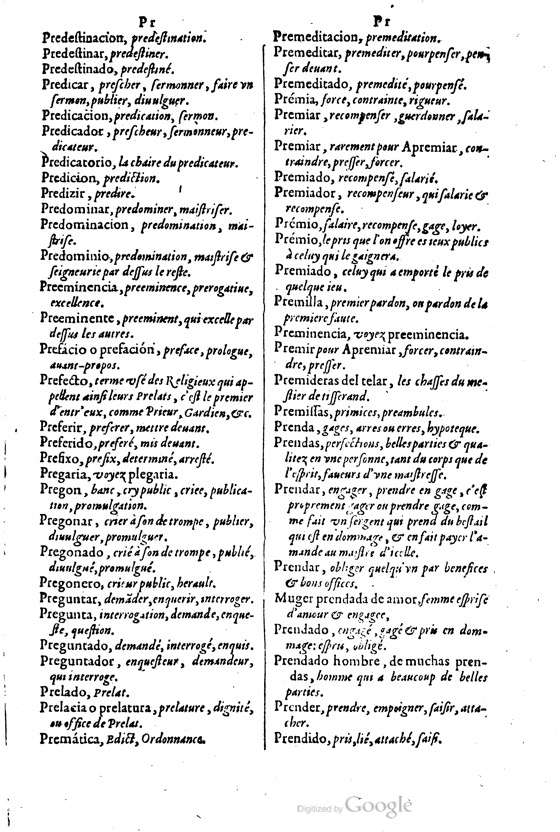 Pr
Predeſtinacion, predeſtination.
Predeſtinar, predeſtiner.
Predeſtinado, predeſtiné.
Predicar, preſcher, ſermonner, faire vn
ſermon, publier, diuulguer.
Predicacion, predication, ſermon.
Predicador, preſcheur, ſermonneur, pre-
dicateur.
Predicatorio, la chaire du predicateur.
Predicion, prediction.
Predizir, predire.
Predominar, predominer, maiſtriſer.
Predominacion, predomination, mai-
ſtriſe.
Predominio, predomination, maiſtriſe &
ſeigneurie par deſſus le reſte.
Preeminencia, preeminence, prerogatiue,
excellence.
Preeminente, preeminent, qui excelle par
deſſus les autres.
Prefacio o prefación, preface, prologue,
auant-propos.
Prefecto, terme vſé des Religieux qui ap-
pellent ainſi leurs Prelats, c'eſt le premier
d'entr'eux, comme Prieur, Gardien, &c.
Preferir, preferer, mettre deuant.
Preferido, preferé, mis deuant.
Prefixo, prefix, determiné, arreſté.
Pregaria, voyez plegaria.
Pregon, banc, cry public, criee, publica-
tion, promulgation.
Pregonar, crier à ſon de trompe, publier,
diuulguer, promulguer.
Pregonado, crié à ſon de trompe, publié,
diuulgué, promulgué.
Pregonero, crieur public, herault.
Preguntar, demãder, enquerir, interroger.
Pregunta, interrogation, demande, enque-
ſte, queſtion.
Preguntado, demandé, interrogé, enquis.
Preguntador, enqueſteur, demandeur,
qui interroge.
Prelado, Prelat.
Prelacia o prelatura, prelature, dignité,
ou office de Prelat.
Premática, Edict, Ordonnance.
Pr
Premeditacion, premeditation.
Premeditar, premediter, pourpenſer, pen-
ſer deuant.
Premeditado, premedité, pourpenſé.
Prémia, force, contrainte, rigueur.
Premiar, recompenſer, guerdonner, ſala-
rier.
Premiar, rarement pour Apremiar, con-
traindre, preſſer, forcer.
Premiado, recompenſé, ſalarié.
Premiador, recompenſeur, qui ſalarie &
recompenſe.
Prémio, ſalaire, recompenſe, gage, loyer.
Prémio, le pris que l'on offre es ieux publics
à celuy qui le gaignera.
Premiado, celuy qui a emporté le pris de
quelque ieu.
Premilla, premier pardon, ou pardon de la
premiere faute.
Preminencia, voyez preeminencia.
Premir pour Apremiar, forcer, contrain-
dre, preſſer.
Premideras del telar, les chaſſes du me-
ſtier de tiſſerand.
Premiſſas, primices, preambules.
Prenda, gages, arres ou erres, hypoteque.
Prendas, perfections, belles parties & qua-
litez en vne personne, tant du corps que de
l'eſprit, faueurs d'vne maiſtreſſe.
Prendar, engager, prendre en gage, c'eſt
proprement gager ou prendre gage, com-
me fait vn ſergent qui prend du beſtail
qui eſt en dommage, & en fait payer l'a-
mande au maiſtre d'icelle.
Prendar, obliger quelqu'vn par benefices
& bons offices.
Muger prendada de amor, femme eſpriſe
d'amour & engagee,
Prendado, engagé, gagé & pris en dom-
mage: eſpris, obligé.
Prendado hombre, de muchas pren-
das, homme qui a beaucoup de belles
parties.
Prender, prendre, empoigner, ſaiſir, atta-
cher.
Prendido, pris, lié, attaché, ſaiſi.
Digitized by Google